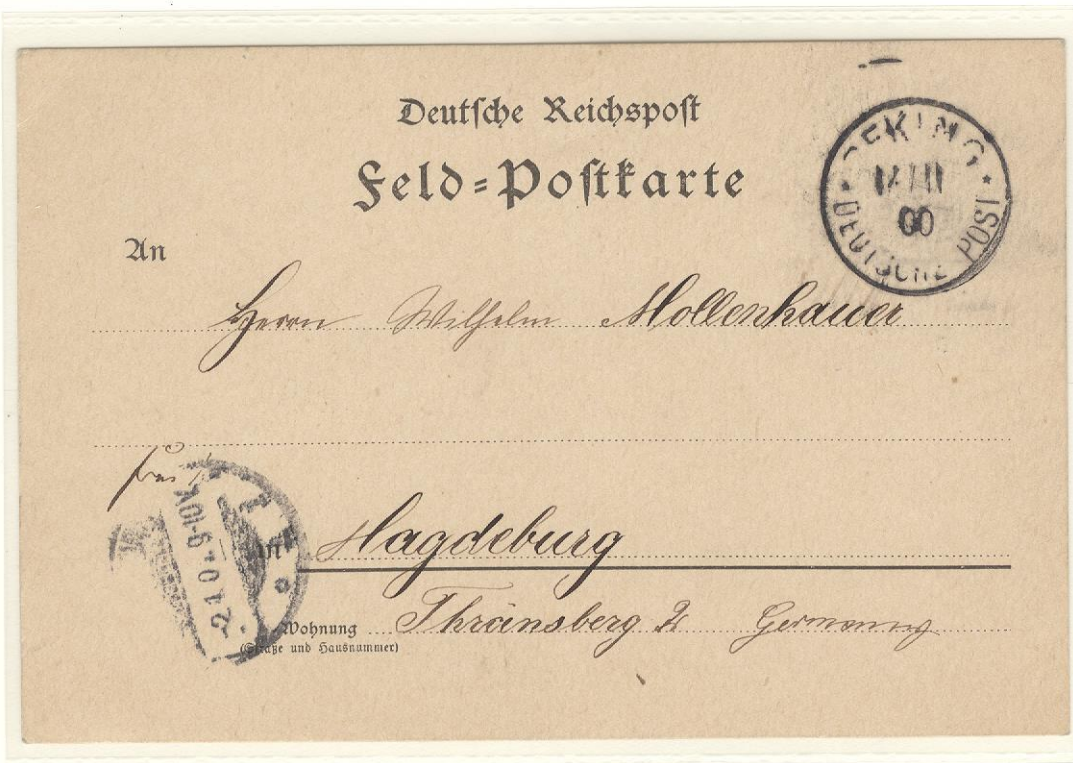 Deutsche Reichspost
Feld-Postkarte
PEKING
00
DEUTSCHE POST
An
Herrn Wilhelm Mollenhauer
in Magdeburg
-2.1.01. 9-10V
Wohnung Thränsberg 2 Germany
(Straße und Hausnummer)